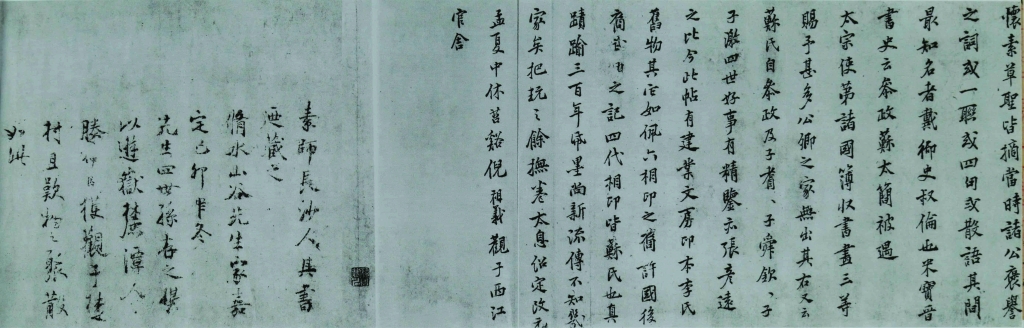 懷素草聖皆摘當時諸公褒譽
之詞或一聯或四句或散語其間
最知名者戴御史叔倫也米寶晉
書史云參政蘇太簡被遇
太宗使第諸國簿收書畫三等
賜予甚多公卿之家無出其右又云
蘇氏自參政及子耆、子舜欽、子
子激四世好事有精鑒亦張彥遠
之比今此帖有建業文房印本李氏
舊物其定如佩六相印之裔許國後
裔 之記四代相印皆蘇氏也真
蹟踰三百年紙墨尚新流傳不知幾
家矣把玩之餘撫卷太息紹定改元
孟夏中休苕谿倪祖義觀于西江
官舍
素師長沙人其書
西藏之
脩水山谷先生家嘉
定己卯半冬
先生四世孫 之
以遊嶽 潭人
滕 獲觀于棲
村且歎物之聚散
如此